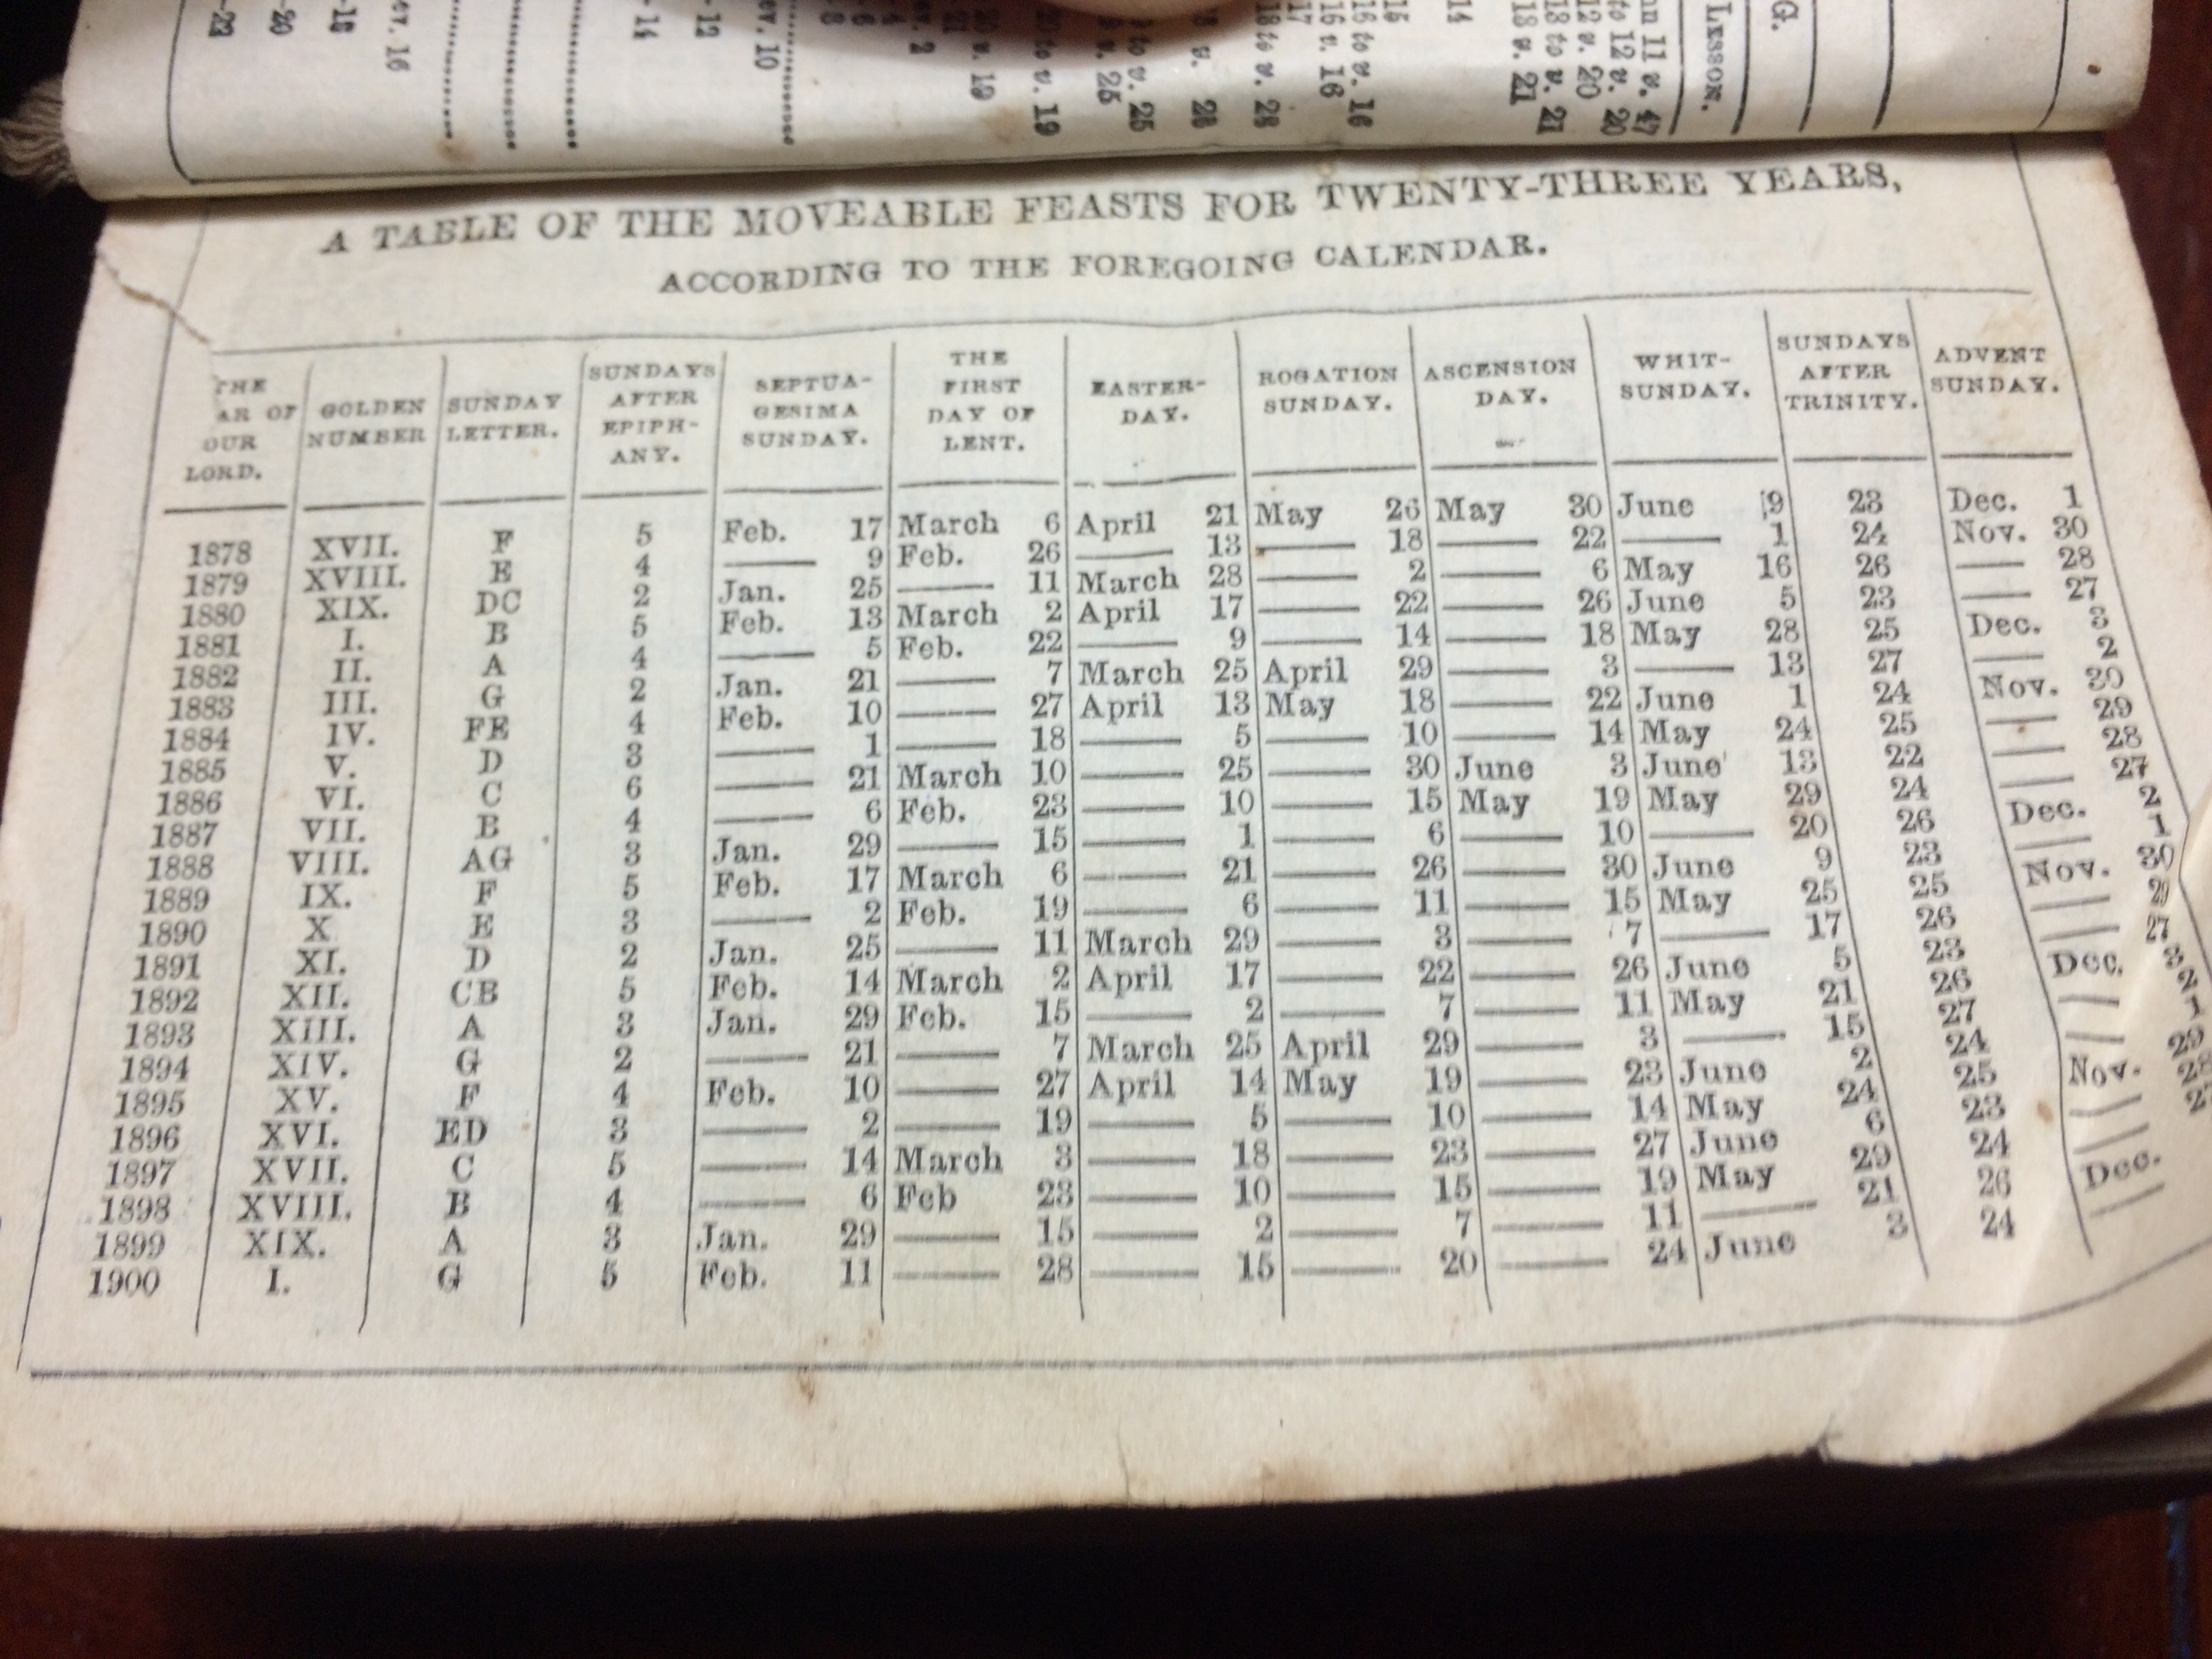 G.
LESSON.
11 v. 47
to 12 v. 20
12 v. 20
13 to v. 21
13 v. 21
14
15
16 to v. 16
16 v. 16
17
18 to v. 28
v. 28
to v. 25
v. 25
to v. 19
v. 19
21
v. 2
v. 10
-12
-14
v. 16
-18
-20
-22
A TABLE OF THE MOVEABLE FEASTS FOR TWENTY-THREE YEARS,
ACCORDING TO THE FOREGOING CALENDAR.
THE AR OF OUR LORD. GOLDEN NUMBER SUNDAY LETTER. SUNDAYS AFTER EPIPH-ANY. SEPTUA-GESIMA SUNDAY. THE FIRST DAY OF LENT. EASTER-DAY. ROGATION SUNDAY. ASCENSION DAY. WHIT-SUNDAY. SUNDAYS AFTER TRINITY. ADVENT SUNDAY.
1878 XVII. F 5 Feb. 17 March 6 April 21 May 26 May 30 June 9 23 Dec. 1
1879 XVIII. E 4 — 9 Feb. 26 — 13 — 18 — 22 — 1 24 Nov. 30
1880 XIX. DC 2 Jan. 25 — 11 March 28 — 2 — 6 May 16 26 — 28
1881 I. B 5 Feb. 13 March 2 April 17 — 22 — 26 June 5 23 — 27
1882 II. A 4 — 5 Feb. 22 — 9 — 14 — 18 May 28 25 Dec. 3
1883 III. G 2 Jan. 21 — 7 March 25 April 29 — 3 — 13 27 — 2
1884 IV. FE 4 Feb. 10 — 27 April 13 May 18 — 22 June 1 24 Nov. 30
1885 V. D 3 — 1 — 18 — 5 — 10 — 14 May 24 25 — 29
1886 VI. C 6 — 21 March 10 — 25 — 30 June 3 June 13 22 — 28
1887 VII. B 4 — 6 Feb. 23 — 10 — 15 May 19 May 29 24 — 27
1888 VIII. AG 3 Jan. 29 — 15 — 1 — 6 — 10 — 20 26 Dec. 2
1889 IX. F 5 Feb. 17 March 6 — 21 — 26 — 30 June 9 23 — 1
1890 X E 3 — 2 Feb. 19 — 6 — 11 — 15 May 25 25 Nov. 30
1891 XI. D 2 Jan. 25 — 11 March 29 — 3 — 7 — 17 26 — 29
1892 XII. CB 5 Feb. 14 March 2 April 17 — 22 — 26 June 5 23 — 27
1893 XIII. A 3 Jan. 29 Feb. 15 — 2 — 7 — 11 May 21 26 Dec. 3
1894 XIV. G 2 — 21 — 7 March 25 April 29 — 3 — 15 27 — 2
1895 XV. F 4 Feb. 10 — 27 April 14 May 19 — 23 June 2 24 — 1
1896 XVI. ED 3 — 2 — 19 — 5 — 10 — 14 May 24 25 Nov. 29
1897 XVII. C 5 — 14 March 3 — 18 — 23 — 27 June 6 23 — 28
1898 XVIII. B 4 — 6 Feb 23 — 10 — 15 — 19 May 29 24 —
1899 XIX. A 3 Jan. 29 — 15 — 2 — 7 — 11 — 21 26 Dec.
1900 I. G 5 Feb. 11 — 28 — 15 — 20 — 24 June 3 24 —